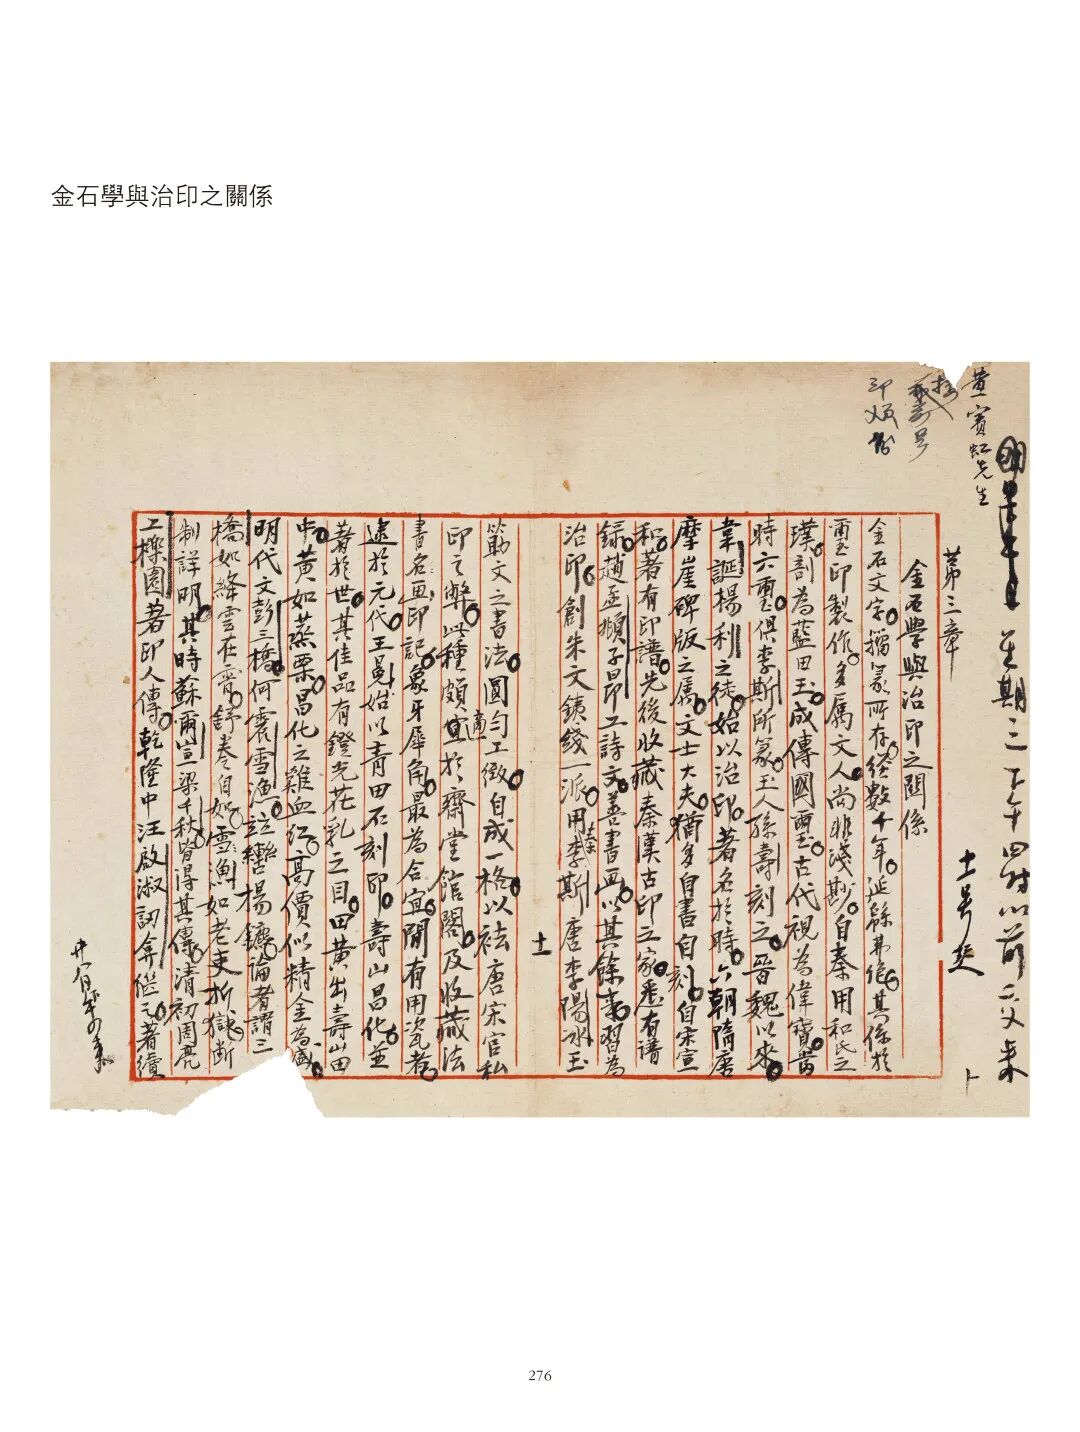 金石學與治印之關係
黄賓虹先生
星期三下午四时以前二文来
十一号廷
第三章
金石學與治印之關係
金石文字。籀篆所存。经數千年。延緜弗絶。其係於
璽印製作。多属文人。尚非淺尠。自秦用和氏之
璞。剖為藍田玉。成傳國璽。古代視為偉寶。當
時六璽。俱李斯所篆。玉人孫壽刻之。晉魏以來。
韋誕楊利之徒。始以治印。著名於時。六朝隋唐
摩崖碑版之属。文士大夫。猶多自書自刻。自宋宣
和。著有印譜。先後收藏秦漢古印之家。悉有譜
録。趙孟頫子昂。工詩文。善書画。以其餘事。習為
治印。創朱文鐵綫一派。用李斯唐李陽冰玉
十一
筯文之書法。圓匀工緻。自成一格。以祛唐宋官私
印之弊。此種頗適宜於齋堂館閣。及收藏法
書名画印記。象牙犀角。最為合宜。閒有用瓷者。
逮於元代。王冕始以青田石刻印。壽山昌化。並
著於世。其佳品有鐙光花乳之目。田黄出壽山田
中。黄如蒸栗。昌化之雞血红。高價似精金為盛。
明代文彭三橋。何震雪漁。竝轡楊鑣。論者謂三
橋如絳雲在霄。舒卷自如。雪漁如老吏折獄。斷
制詳明。其時蘇爾宣梁千秋。皆得其傳。清初周亮
工櫟園著印人傳。乾隆中汪啟淑訒庵继之。著續